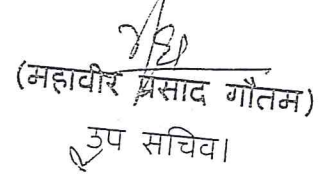 (महावीर प्रसाद गौतम)
उप सचिव।